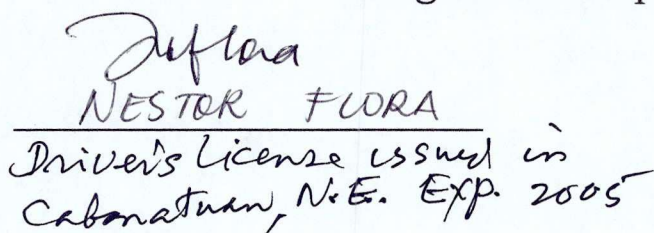 NESTOR FLORA
Driver's license issued in
Cabanatuan, N.E. Exp. 2005